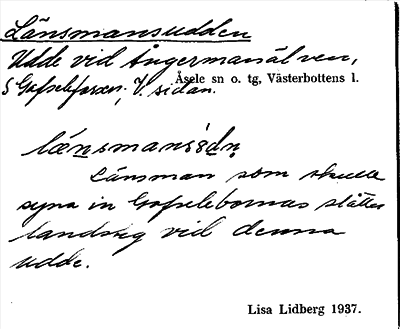 Länsmansudden
Udde vid Ångermanälven,
S Gafseleforsen; V. sidan. Åsele sn o. tg, Västerbottens l.
länsmans
Länsman som skulle
syna in Gafselebornas slåtter
landsteg vid denna
udde.
Lisa Lidberg 1937.